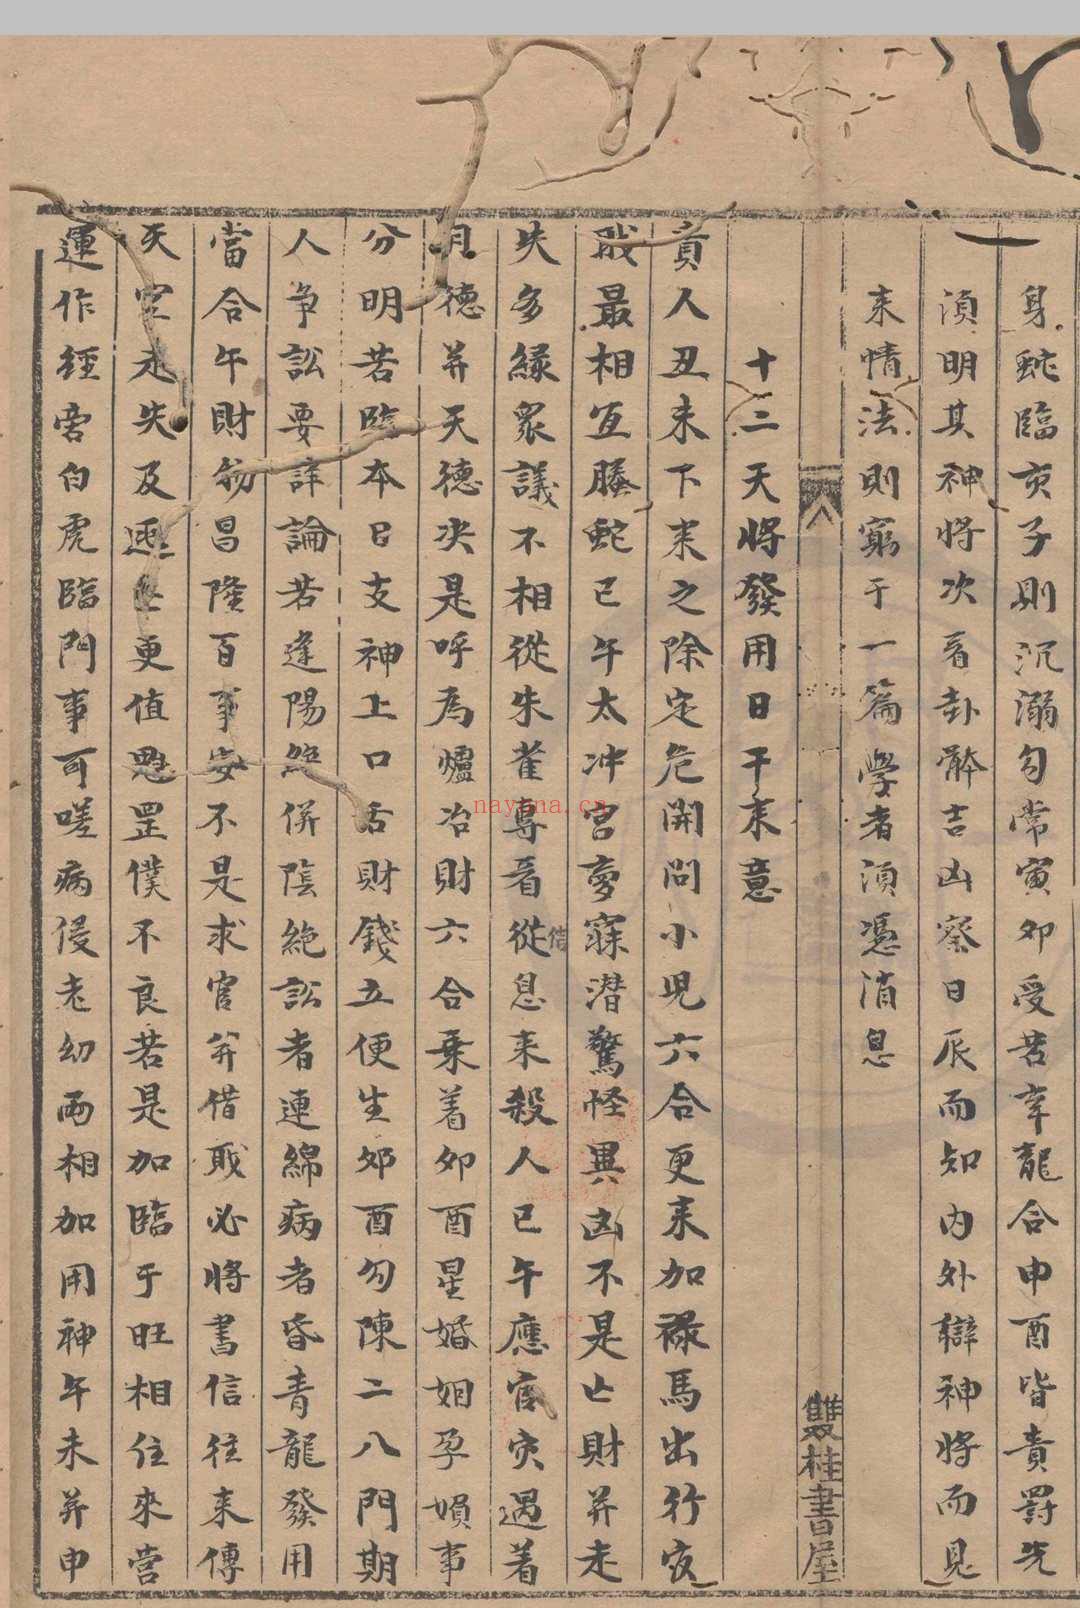 身蛇臨亥子則沉溺勾常寅卯受苦辛龍合申酉皆責罰先
須明其神將次看卦骵吉凶察日辰而知內外辯神將而見
来情法則窮于一篇學者須憑消息
雙桂書屋
十二天將發用日干来意
貴人丑未下来之除定危開問小児六合更来加祿馬出行夜
戢最相宜螣蛇巳午太冲宮夢寐潜驚怪異凶不是亡財并走
失多緣衆議不相從朱雀專看從息来殺人巳午應官灾遇着
信
月德并天德决是呼為爐冶財六合乗着夘酉星婚姻孕娠事
分明若臨本日支神上口舌財錢立便生夘酉勾陳二八門期
人争訟要詳論若逢陽絕併陰絕訟者連綿病者昏青龍發用
當合午財物昌隆百事安不是求官并借取必將書信往来傳
天空走失及逃亡更值魁罡僕不良若是加臨于旺相住來营
運作經旁白虎臨門事可嗟病侵老幼兩相加用神午未并申
nayona.cn